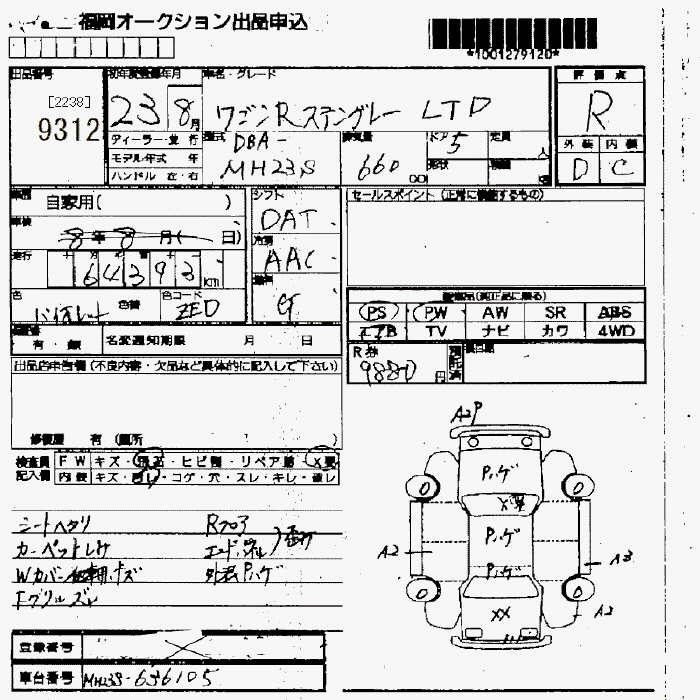 福岡オークション出品申込
*1001279120*
出品番号 初年度登録年月 車名・グレード 評価点
[2238]
9312
23 8月 ワゴンRスティングレー LTD R
ディーラー・並行 型式 DBA- 排気量 ドア 5 定員 人 外装 内装
モデル年式 年 MH23S 660 形状
ハンドル 左・右 D C
車歴 自家用( ) シフト DAT セールスポイント (正常に機能するもの)
車検 8年8月( 日) 冷房 AAC
走行 64393 km 燃料
色 色替 色コード ZED
PS PW AW SR ABS
エアB TV ナビ カワ 4WD
有・無 名変通知期限 月 日
R券 9880円
出品店申告欄 (不良内容・欠品など具体的に記入して下さい)
修復歴 有 (箇所 )
検査員 FW キズ・飛石・ヒビ割・リペア跡・X要
記入欄 内装 キズ・汚レ・コゲ・穴・スレ・キレ・破レ
シートヘタリ Rフロア
カーペットヨレ エンドパネル
Wカバー キズ 外装Pハゲ
Fグリルズレ
A2P
Pハゲ
X要
Pハゲ
Pハゲ
XX
A2 A3
A2
登録番号
車台番号 MH23S-636105